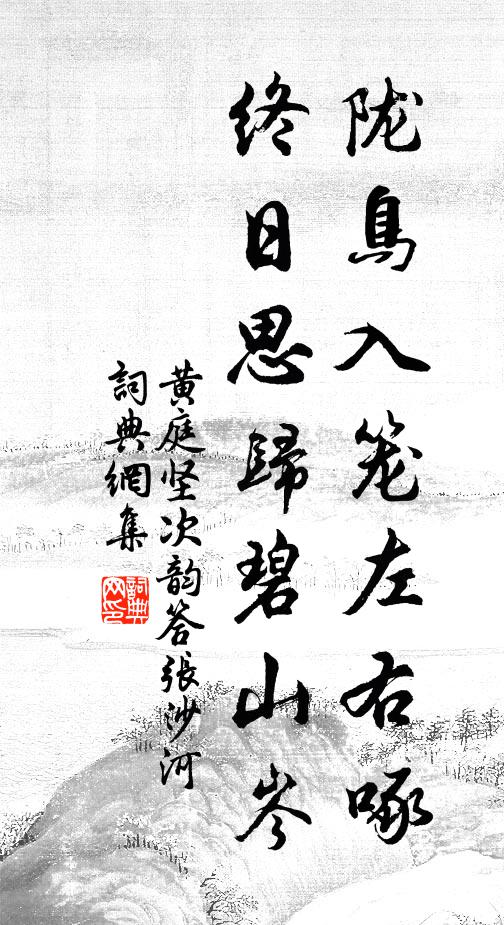 陇鳥入笼左右啄
终日思歸碧山岑
黄庭坚次韵答張沙河
詞典網集
詞典
网印